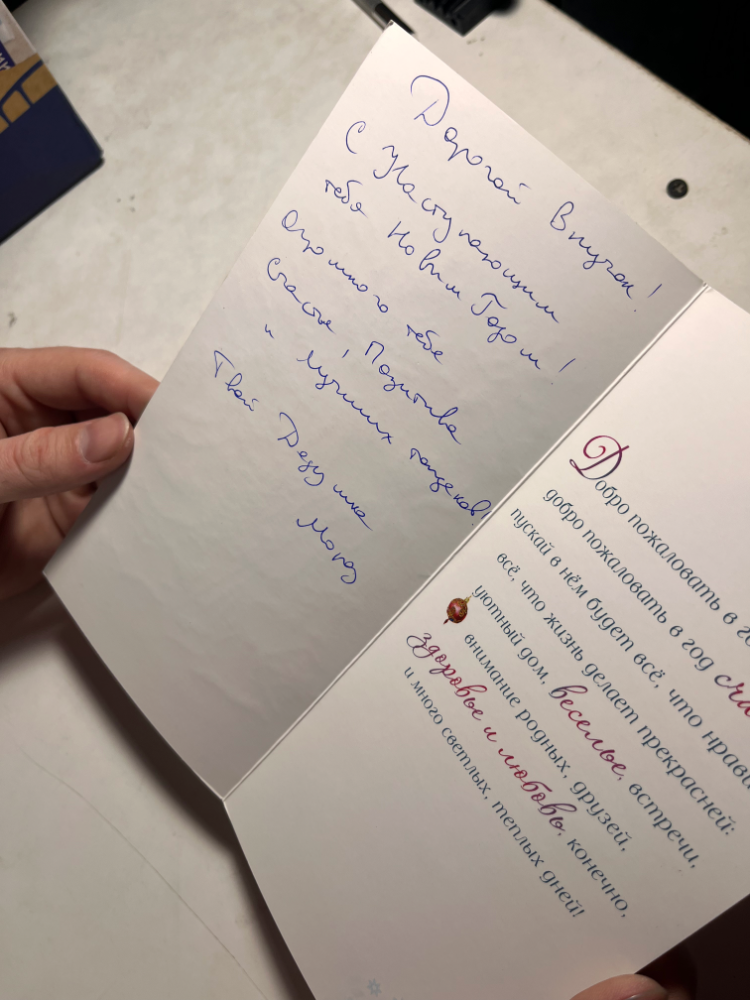 Дорогой Внучок!
С Наступающим
тебя Новым Годом!
Огромного тебе
счастья, Позитива
и лучших танцев!
Твой Дедушка
Мороз
Добро пожаловать в
добро пожаловать в год
пускай в нём будет всё, что
всё, что жизнь делает прекрасней:
уютный дом, веселье, встречи,
внимание родных, друзей,
здоровье и любовь, конечно,
и много светлых, теплых дней!